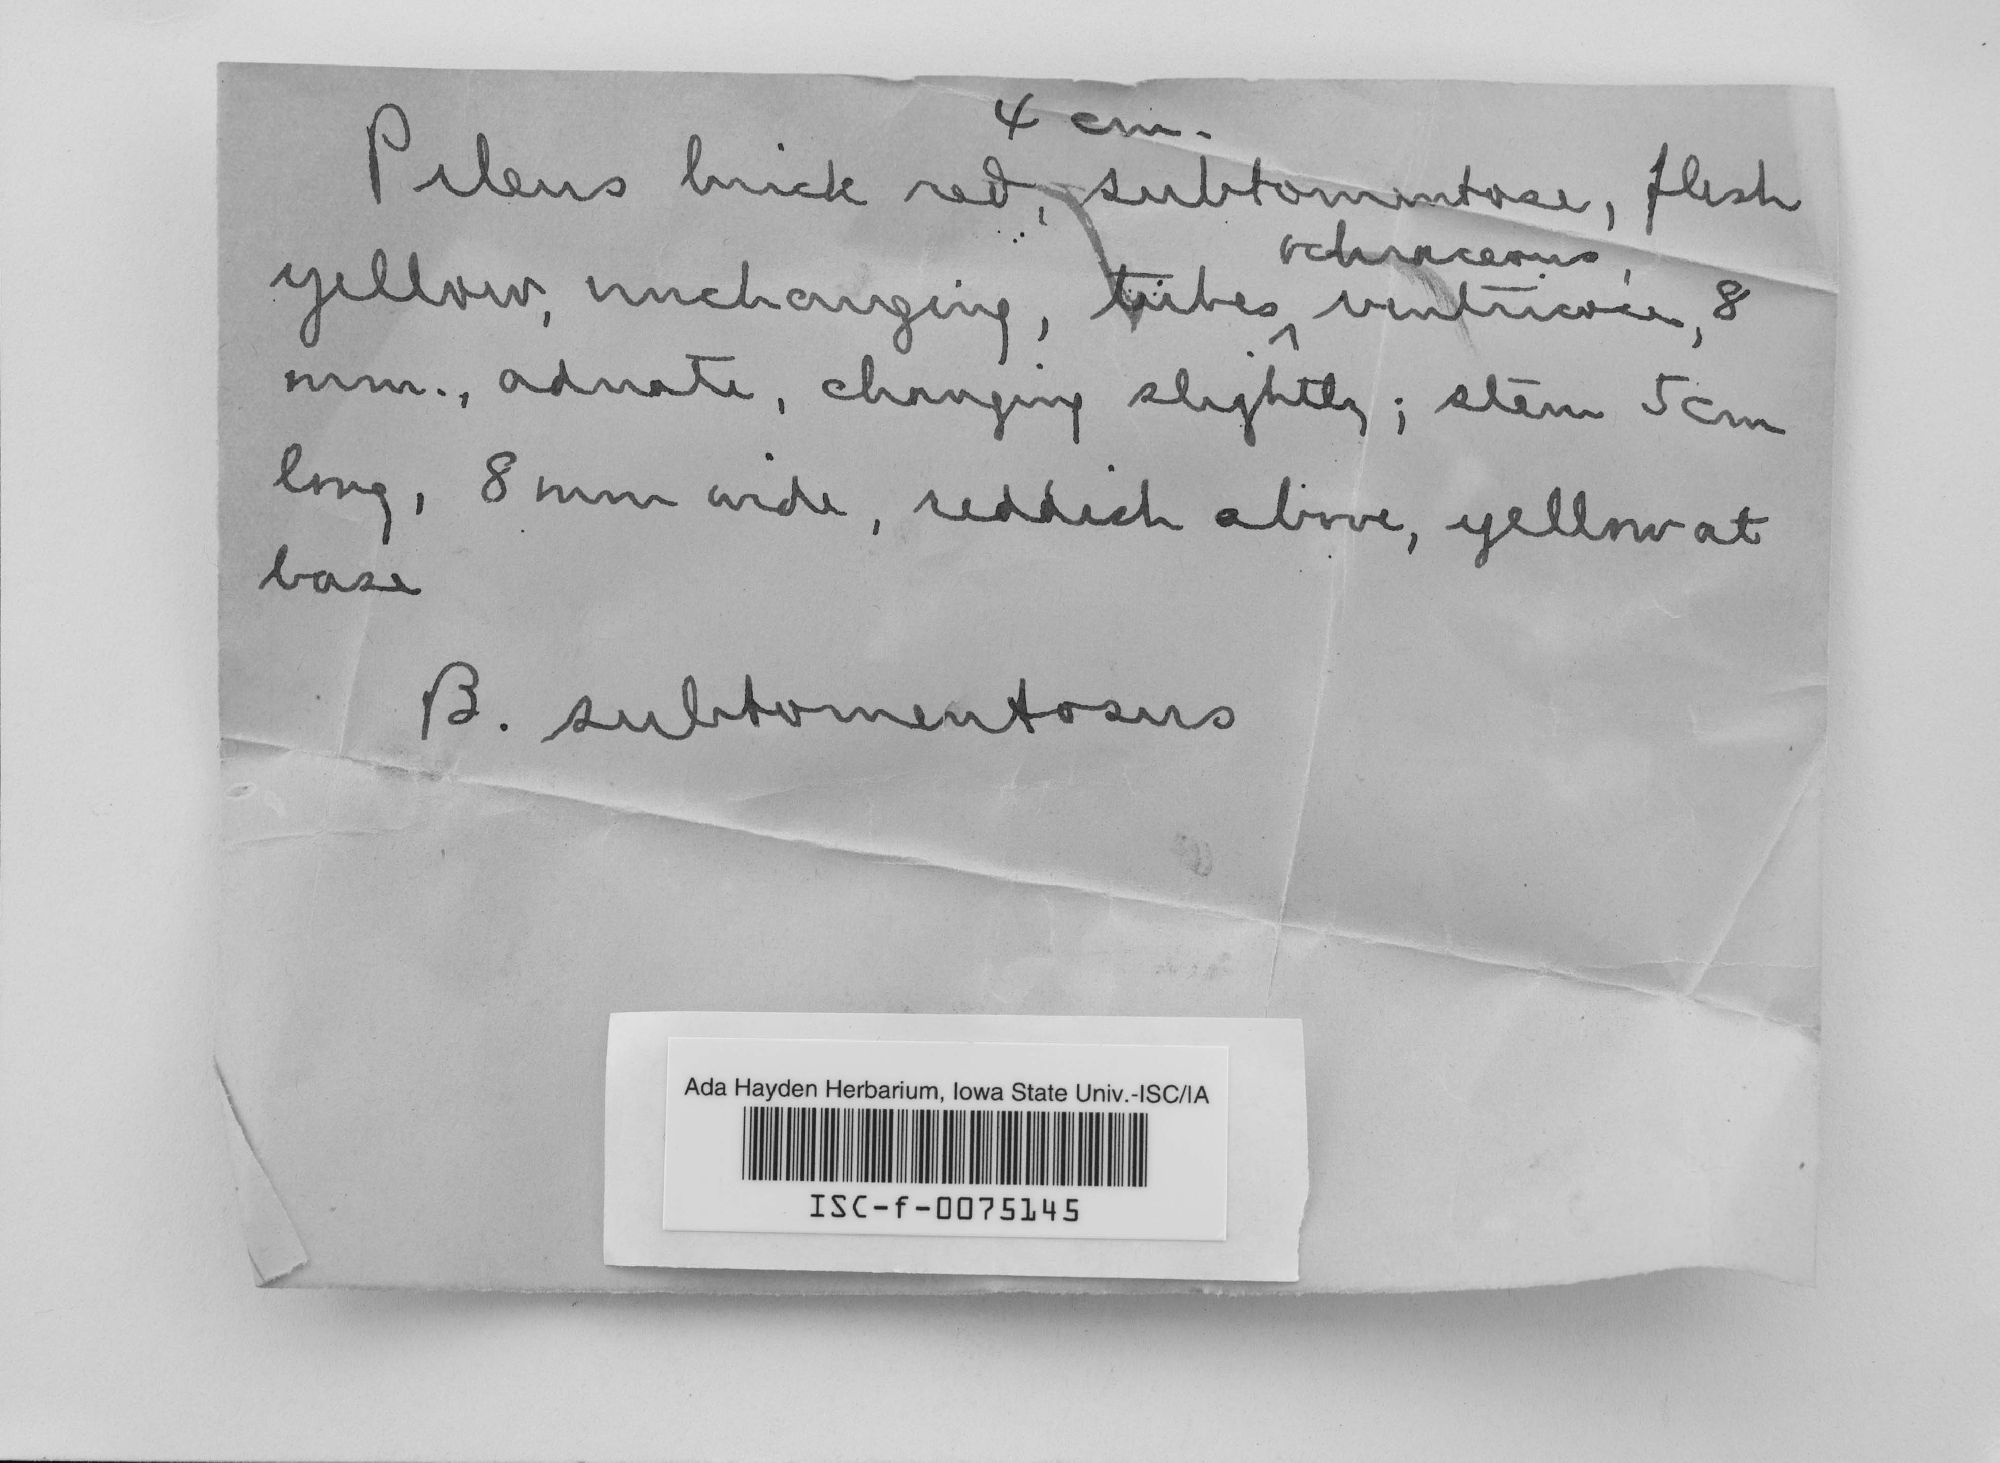 4 cm.
Pileus brick red, subtomentose, flesh
ochraceous,
yellow, unchanging, tubes ventricose, 8
mm., adnate, changing slightly; stem 5cm
long, 8mm wide, reddish above, yellow at
base
B. subtomentosus
Ada Hayden Herbarium, Iowa State Univ.-ISC/IA
ISC-f-0075145